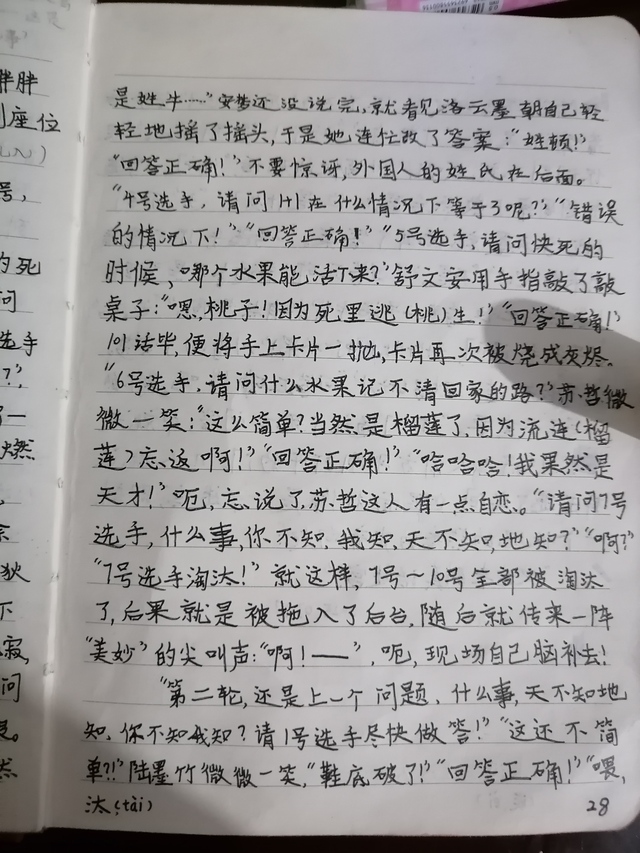 胖胖
座位
号，
的死
问
选手
？，
了一
燃
狄
下
寂，
问
然
是姓牛……”安梦还没说完，就看见洛云墨朝自己轻
轻地摇了摇头，于是她连忙改了答案：“姓顿！”
“回答正确！”不要惊讶，外国人的姓氏在后面。
“4号选手，请问1+1在什么情况下等于3呢？”“错误
的情况下！”“回答正确！”“5号选手，请问快死的
时候，哪个水果能活下来？”舒文安用手指敲了敲
桌子：“嗯，桃子！因为死里逃（桃）生！”“回答正确！”
101话毕，便将手上卡片一抛，卡片再一次被烧成灰烬。
“6号选手，请问什么水果记不清回家的路？”苏哲微
微一笑：“这么简单？当然是榴莲了，因为流连（榴
莲）忘返啊！”“回答正确！”“哈哈哈！我果然是
天才！”呃，忘说了，苏哲这人有一点自恋。“请问7号
选手，什么事，你不知，我知，天不知，地知？”“啊？”
“7号选手淘汰！”就这样，7号～10号全部被淘汰
了，后果就是被拖入了后台，随后就传来一阵
“美妙”的尖叫声：“啊！——”，呃，现场自己脑补去！
“第二轮，还是上一个问题，什么事，天不知地
知，你不知我知？请1号选手尽快做答！”“这还不简
单？！”陆墨竹微微一笑，“鞋底破了！”“回答正确！”“喂，
汰（tài）
28